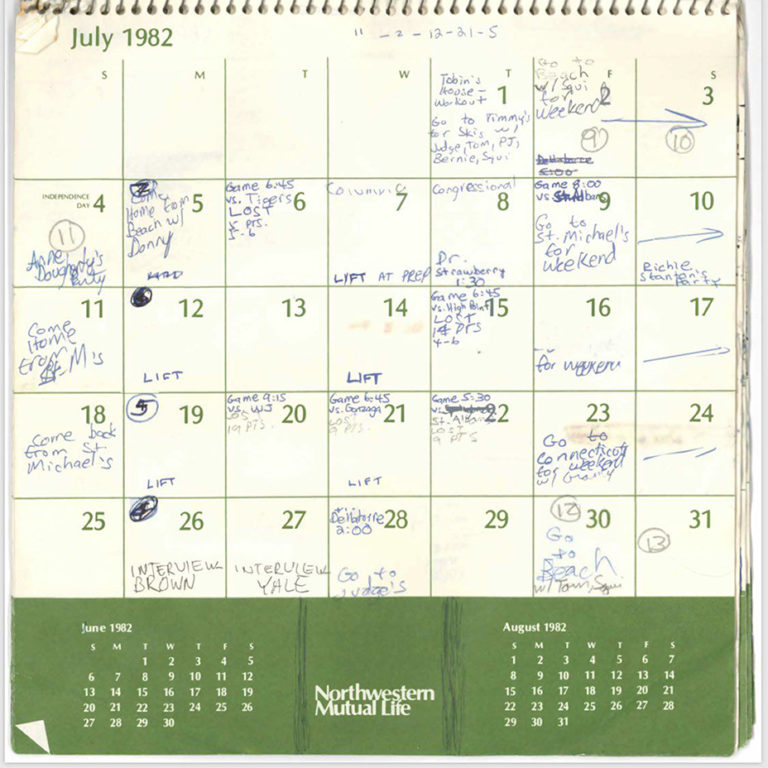 July 1982
11 - 2 - 12-21-5
S M T W T F S
Tobin's
House -
Workout
1
Go to Timmy's
for Skis w/
Judge, Tom, PJ,
Bernie, Squi
Go to
Beach
w/ Squi
for
Weekend
2
9
3
10
INDEPENDENCE
DAY
4
11
Anne
Dougherty's
Party
5
Come
Home from
Beach w/
Donny
Game 6:45
vs. Tigers
6
LOST
5-6
7
LIFT AT PREP
Congressional
8
Dr.
Strawberry
1:30
Game 8:00
vs.
9
Go to
St. Michael's
for
weekend
10
Richie
Stanton's
Party
11
Come
Home
from
M's
12
LIFT
13
14
LIFT
Game 6:45
vs.
15
LOST
PTS
4-6
16
for
17
18
Come back
from St.
Michael's
19
LIFT
Game 9:15
vs. WJ
20
LOS
19 PTS.
Game 6:45
vs. Gonzaga
21
LOST
9 PTS.
LIFT
Game 5:30
vs.
22
St. Albans
LOST
9 PTS
23
Go to
Connecticut
for weekend
w/
24
25
26
INTERVIEW
BROWN
27
INTERVIEW
YALE
Delbarre
28
2:00
Go to
Judge's
29
12
30
Go
to
Beach
w/ Tom, Squi
31
13
June 1982
S M T W T F S
1 2 3 4 5
6 7 8 9 10 11 12
13 14 15 16 17 18 19
20 21 22 23 24 25 26
27 28 29 30
Northwestern
Mutual Life
August 1982
S M T W T F S
1 2 3 4 5 6 7
8 9 10 11 12 13 14
15 16 17 18 19 20 21
22 23 24 25 26 27 28
29 30 31